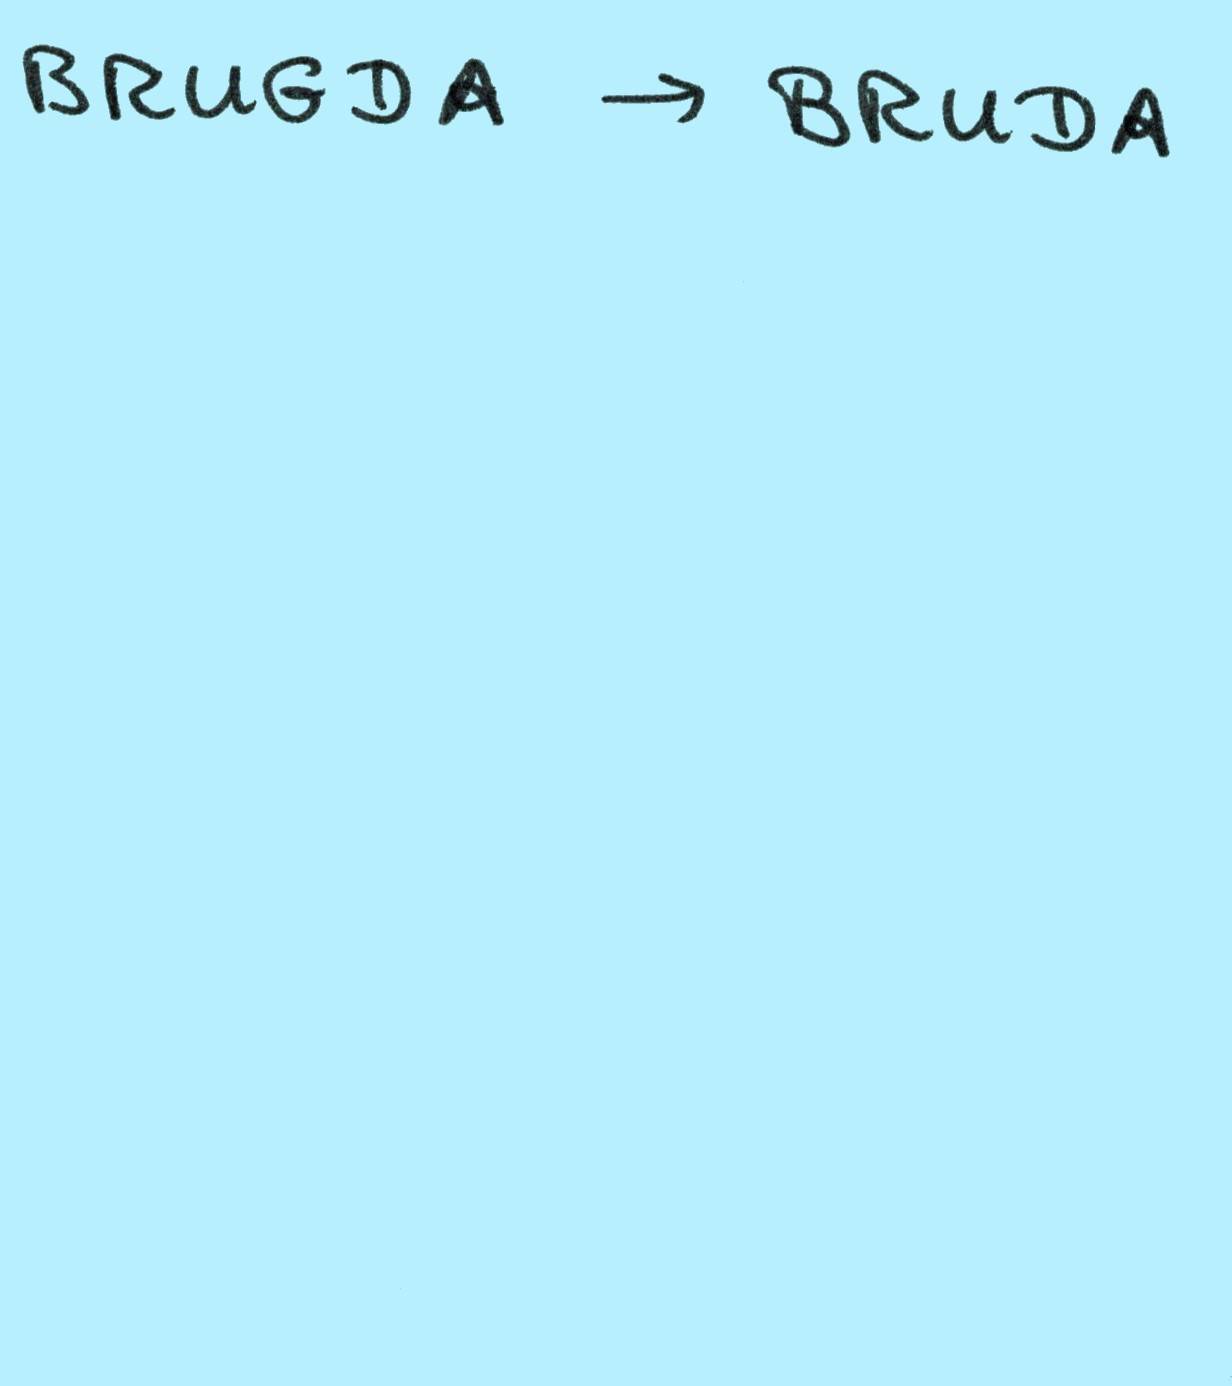 BRUGDA → BRUDA